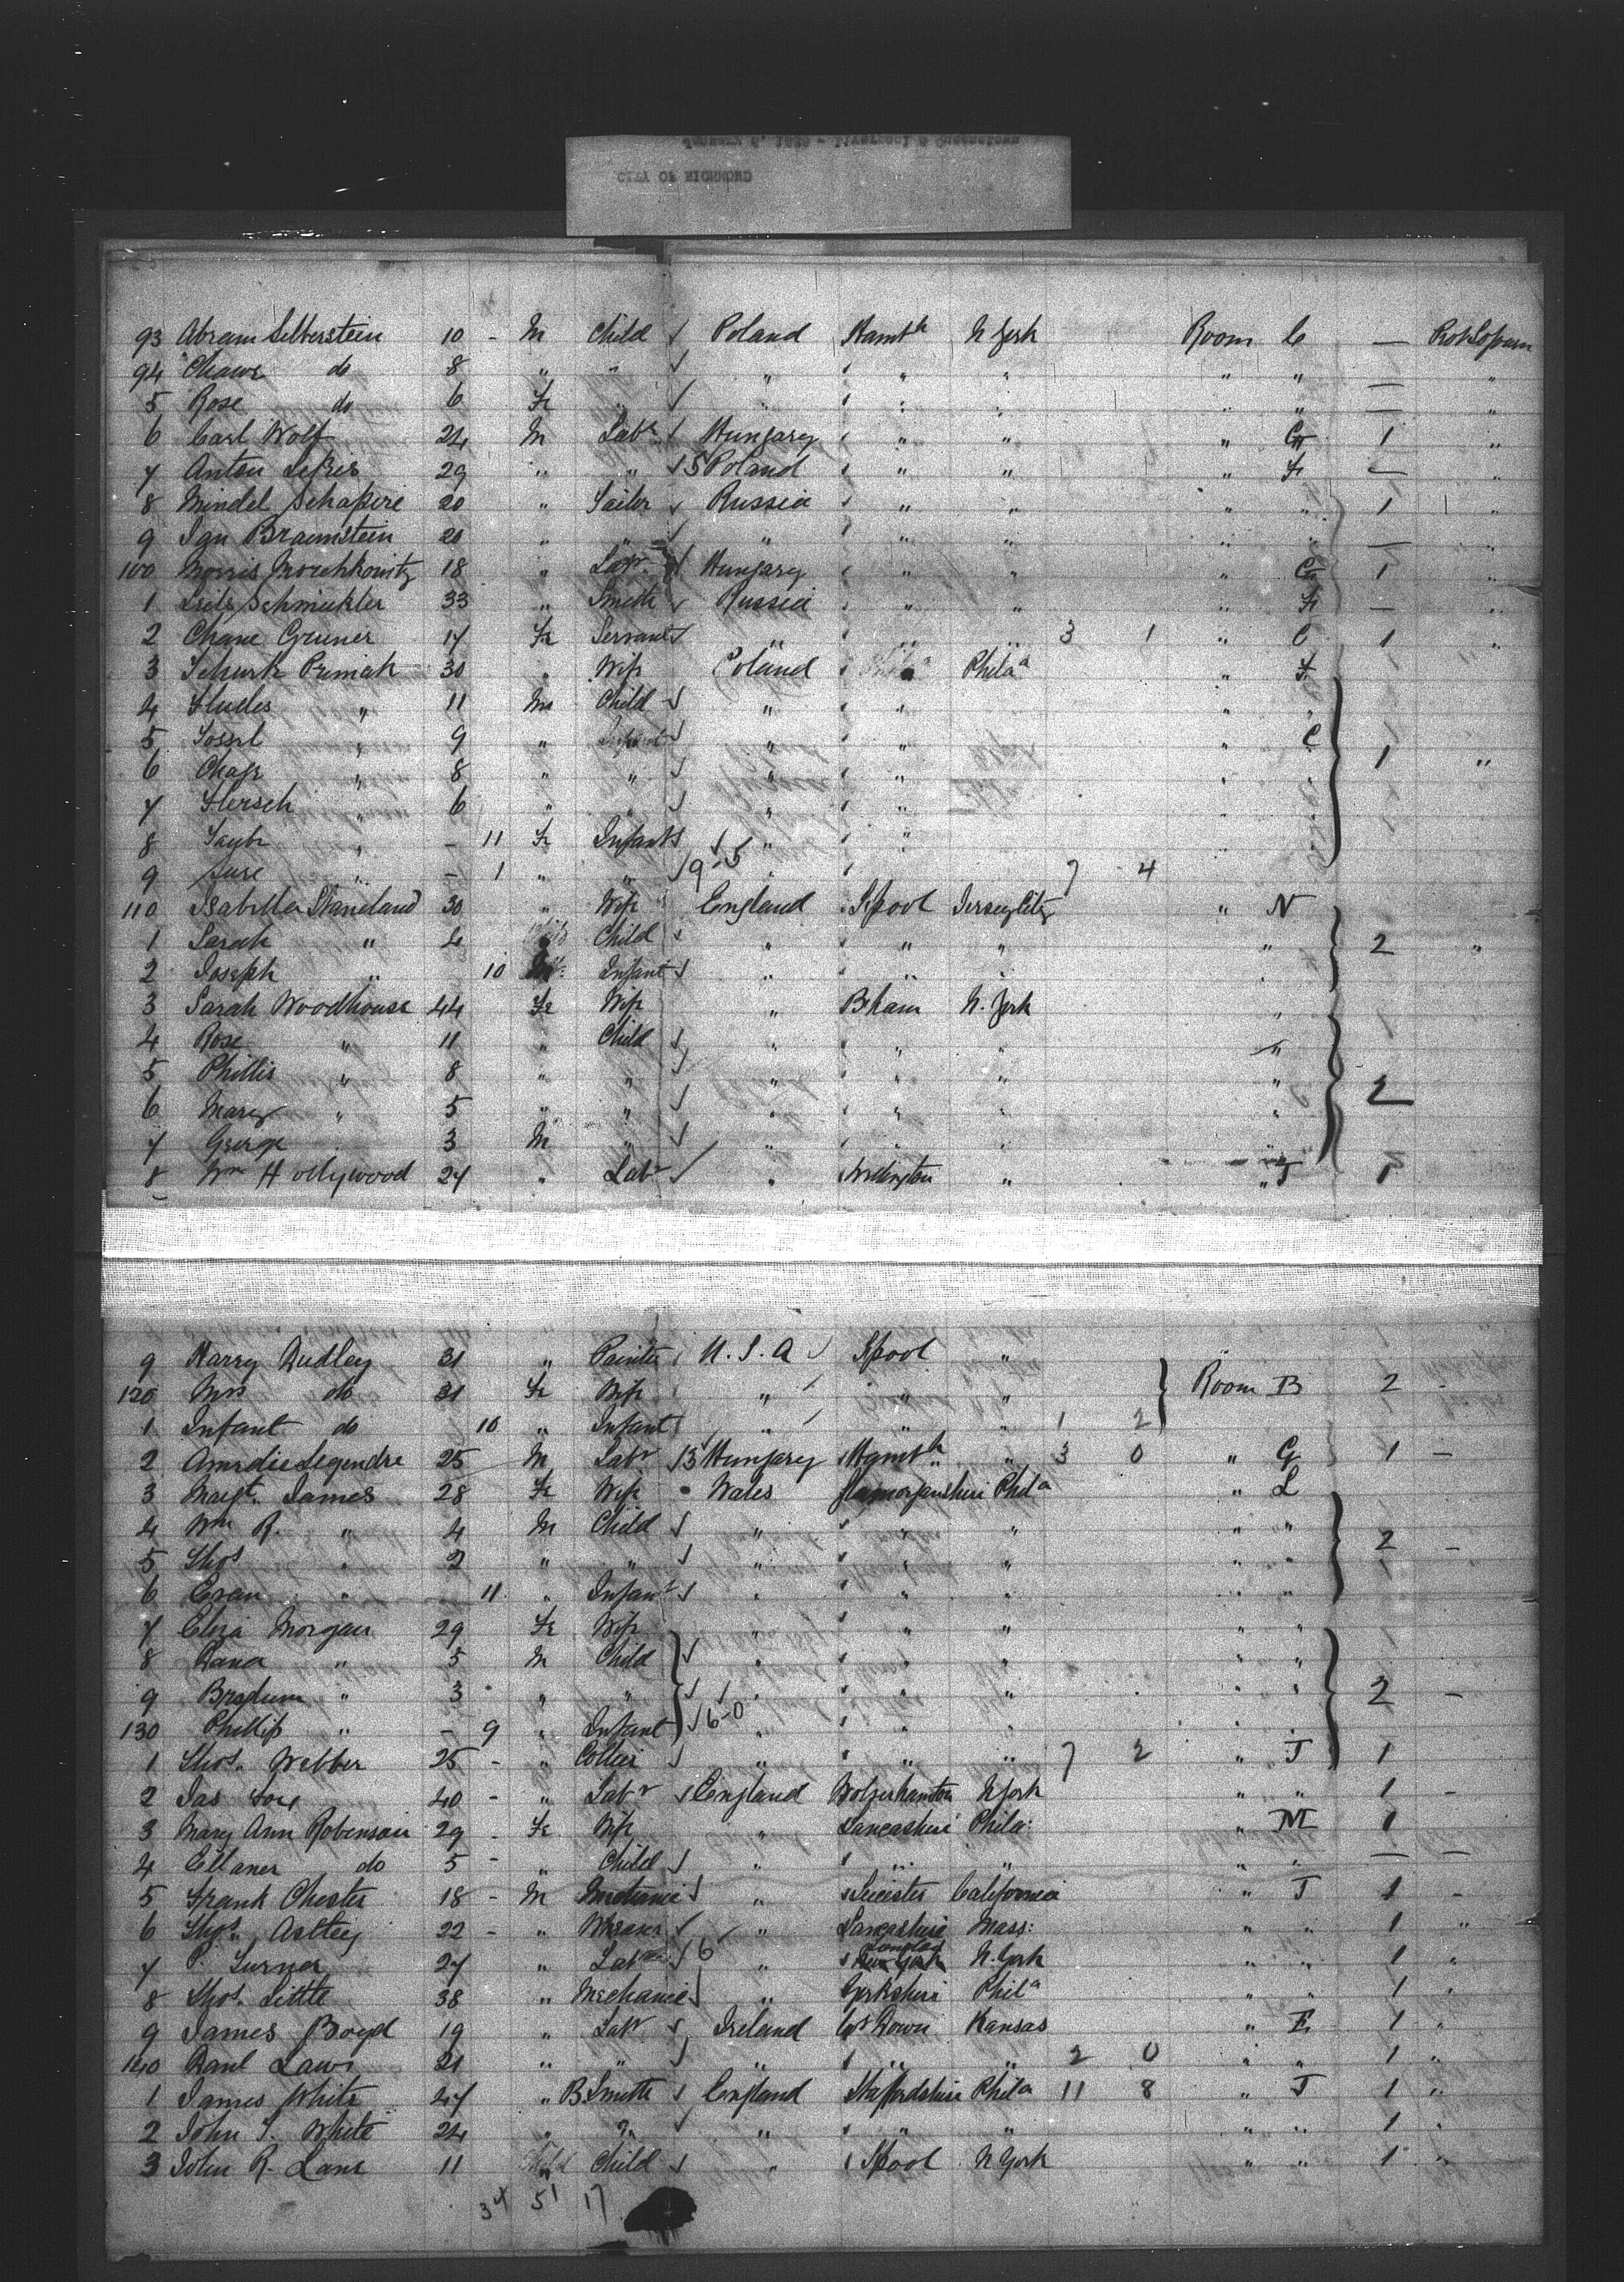 CITY OF RICHMOND
January 5, 1889 - Liverpool & Queenstown
93 Abram Silberstein 10 - M Child Poland Hamb N York Room C —
94 Chawe do 8 " " " " " " " —
5 Rose do 6 Fe " " " " " " —
6 Carl Wolf 24 M Labr Hungary " " " G 1 "
7 Anton 29 " " 5 Poland " " " F — "
8 Mindel Schapire 20 " Tailor Russia " " " " 1 "
9 Braunstein 20 " " " " " " " — "
100 Morris 18 " Labr Hungary " " " G 1 "
1 33 " Smith Russia " " " F — "
2 Chane 17 Fe Servant " " " 3 1 " C 1 "
3 30 " Wife Poland Phila " F
4 " 11 M Child " " " "
5 " 9 " Infant " " " C
6 " 8 " " " " " " 1 "
7 Hersch " 6 " " " " " "
8 " - 11 Fe Infant " " " "
9 " - 1 " " 9-5 7 4
110 Isabella Staneland 30 " Wife England Lpool Jersey City " N
1 Sarah " 4 Child " " " " 2 "
2 Joseph " 10 Infant " " "
3 Sarah Woodhouse 44 Fe Wife " Bham N. York "
4 Rose " 11 " Child " " " "
5 Phillis " 8 " " " " " "
6 Mary " 5 " " " " " 2
7 George 3 M " " " " "
8 Wm Hollywood 24 " Labr " Wellington " " J 1
9 Harry Dudley 31 " Painter U.S.A Lpool "
120 Mrs do 31 Fe Wife " " " Room B 2 -
1 Infant do 10 " Infant " " " 1 2
2 Amedie Legendre 25 M Labr 3 Hungary Hamb " 3 0 " G 1 —
3 Margt. James 28 Fe Wife Wales Glamorganshire Phila " L
4 Wm R. " 4 M Child " " " " "
5 Thos " 2 " " " " " " " 2 -
6 Evan " 11 " Infant " " " " "
7 Eliza Morgan 29 Fe Wife " " " " "
8 " 5 M Child " " " " "
9 " 3 " " " " " " " 2 -
130 Phillip " - 9 " Infant 6-0 " " " " "
1 Thos. Webber 25 - " Collier " " " 7 2 " J 1
2 Jas 40 - " Labr England Wolverhamton N York " " 1 -
3 Mary Ann Robinson 29 - Fe Wife " Lancashire Phila: " M 1
4 Ellaner do 5 - " Child " " " " " — —
5 Frank Chester 18 - M Mechanic " Leicester California " J 1 -
6 Thos. Astley 22 - " Weaver " Lancashire Mass: " " 1 "
7 P. Turner 27 " Labr 6 " London New York N. York " " 1 "
8 Thos. Little 38 " Mechanic " Yorkshire Phila " " 1 "
9 James Boyd 19 " Labr Ireland Co Down Kansas " E 1 "
140 Laws 21 " " " " " 2 0 " " 1 "
1 James White 27 " B. Smith England Staffordshire Phila 11 8 " J 1 "
2 John T. White 24 " " " " " " " 1 "
3 John R. Lane 11 Child Child " Lpool N York " " 1 "
34 51 17